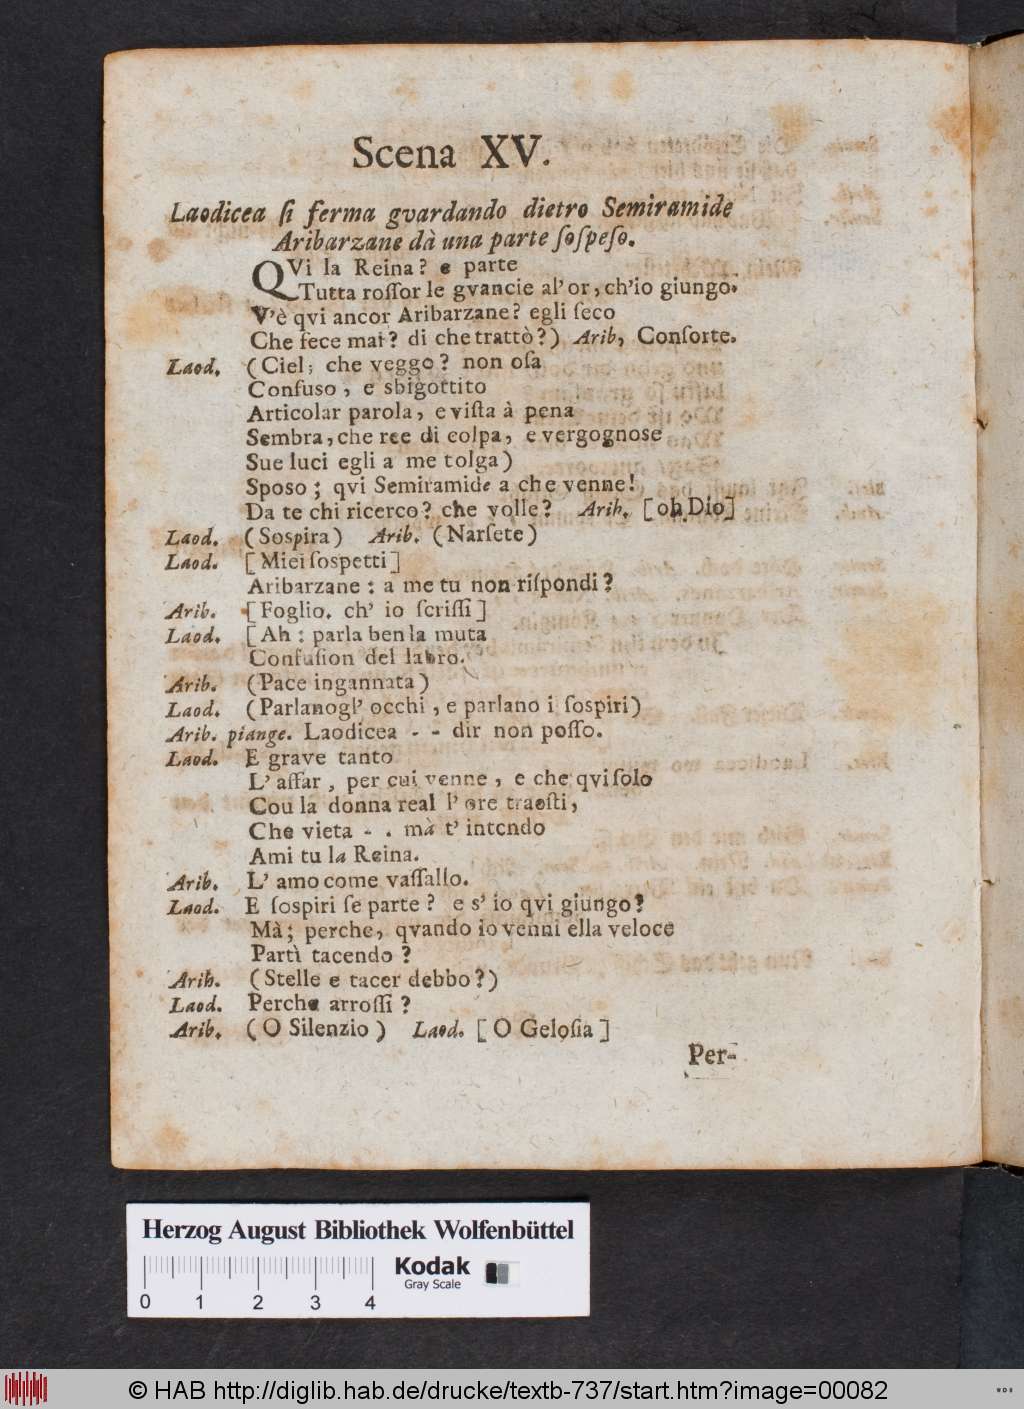 Scena XV.
Laodicea ſi ferma gvardando dietro Semiramide
Aribarzane dà una parte ſoſpeſo.
QVi la Reina? e parte
Tutta roſſor le gvancie al' or, ch'io giungo.
V'è qvi ancor Aribarzane? egli ſeco
Che fece mai? di che trattò?) Arib, Conſorte.
Laod. (Ciel; che veggo? non oſa
Confuso, e sbigottito
Articolar parola, e viſta à pena
Sembra, che ree di colpa, e vergognose
Sue luci egli a me tolga)
Sposo; qvi Semiramide a che venne!
Da te chi ricerco? che volle? Arib. [oh Dio]
Laod. (Sospira) Arib. (Narſete)
Laod. [Miei ſospetti]
Aribarzane: a me tu non riſpondi?
Arib. [Foglio. ch' io ſcriſſi]
Laod. [Ah: parla ben la muta
Confuſion del labro.
Arib. (Pace ingannata)
Laod. (Parlanogl' occhi, e parlano i ſospiri)
Arib. piange. Laodicea - - dir non poſſo.
Laod. E grave tanto
L' affar, per cui venne, e che qvi ſolo
Cou la donna real l' ore traeſti,
Che vieta - . mà t' intendo
Ami tu la Reina.
Arib. L' amo come vaſſallo.
Laod. E ſospiri ſe parte? e s' io qvi giungo?
Mà; perche, qvando io venni ella veloce
Partì tacendo?
Arib. (Stelle e tacer debbo?)
Laod. Perche arroſſi?
Arib. (O Silenzio) Laod. [O Geloſia]
Per-
Herzog August Bibliothek Wolfenbüttel
Kodak
Gray Scale
0 1 2 3 4
© HAB http://diglib.hab.de/drucke/textb-737/start.htm?image=00082